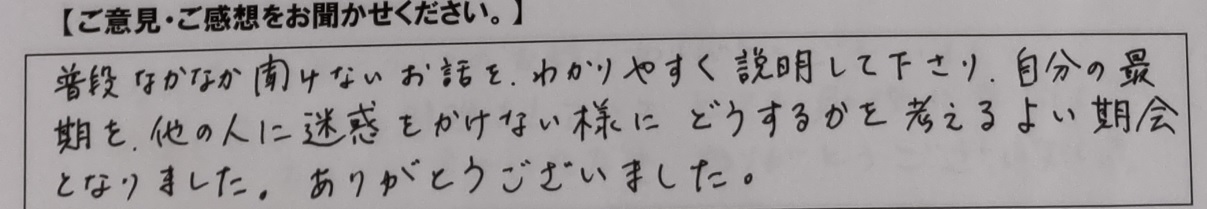 【ご意見・ご感想をお聞かせください。】
普段なかなか聞けないお話を、わかりやすく説明して下さり、自分の最
期を、他の人に迷惑をかけない様にどうするかを考えるよい期会
となりました。ありがとうございました。